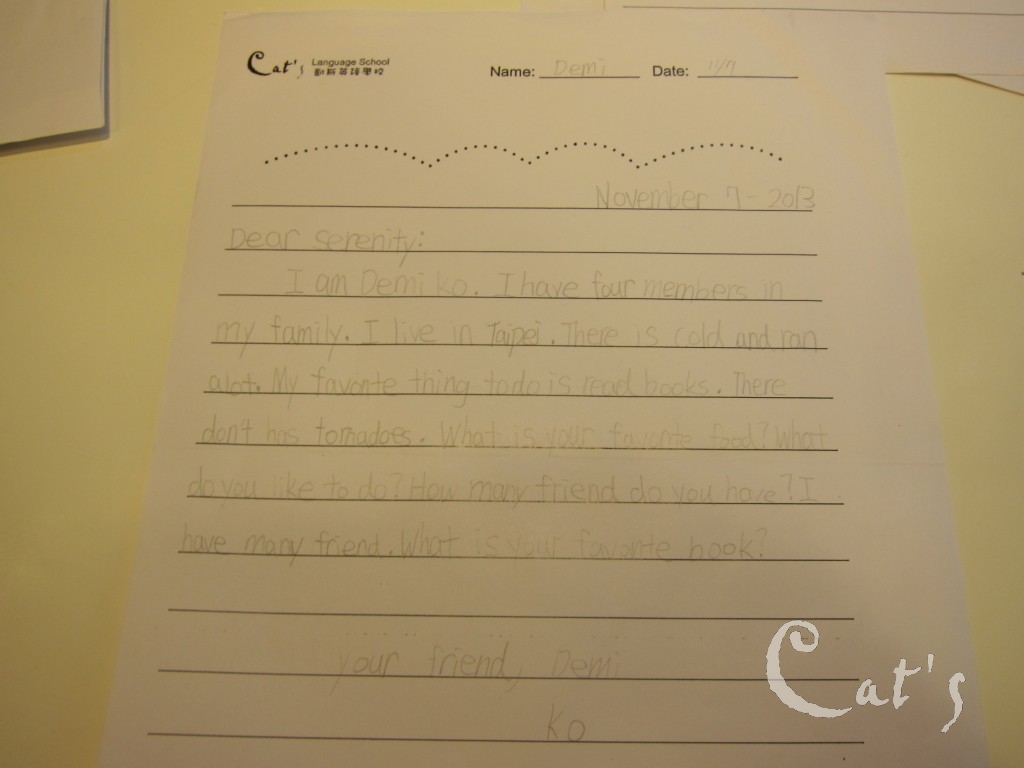 Cat's Language School
Name: Demi Date: 11/7
November 7-2013
Dear Serenity:
I am Demi ko. I have four members in
my family. I live in Taipei. There is cold and ran
alot. My favorite thing to do is read books. There
don't has tornadoes. What is your favorite food? What
do you like to do? How many friend do you have? I
have many friend. What is your favorite book?
your friend, Demi
Ko
Cat's